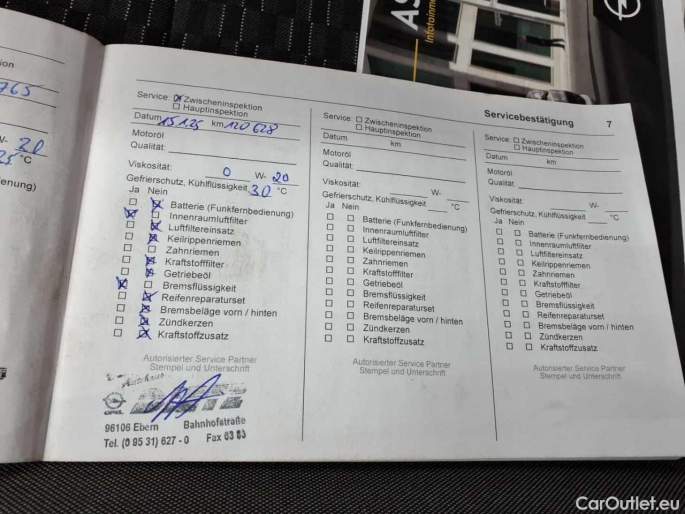 AS
Infotainm
ion
765
W- 20
25 °C
enung)
Servicebestätigung 7
Service: ☒ Zwischeninspektion
☐ Hauptinspektion
Datum 15.1.25 km 120 628
Motoröl
Qualität:
Viskosität: 0 W- 20
Gefrierschutz, Kühlflüssigkeit 30 °C
Ja Nein
☐ ☒ Batterie (Funkfernbedienung)
☒ ☐ Innenraumluftfilter
☐ ☒ Luftfiltereinsatz
☐ ☒ Keilrippenriemen
☐ ☐ Zahnriemen
☐ ☒ Kraftstofffilter
☐ ☒ Getriebeöl
☒ ☐ Bremsflüssigkeit
☐ ☒ Reifenreparaturset
☐ ☒ Bremsbeläge vorn / hinten
☐ ☒ Zündkerzen
☐ ☒ Kraftstoffzusatz
Autorisierter Service Partner
Stempel und Unterschrift
Autohaus
OPEL
96106 Ebern Bahnhofstraße
Tel. (0 95 31) 627 - 0 Fax 63 83
Service: ☐ Zwischeninspektion
☐ Hauptinspektion
Datum km
Motoröl
Qualität:
Viskosität: W-
Gefrierschutz, Kühlflüssigkeit °C
Ja Nein
☐ ☐ Batterie (Funkfernbedienung)
☐ ☐ Innenraumluftfilter
☐ ☐ Luftfiltereinsatz
☐ ☐ Keilrippenriemen
☐ ☐ Zahnriemen
☐ ☐ Kraftstofffilter
☐ ☐ Getriebeöl
☐ ☐ Bremsflüssigkeit
☐ ☐ Reifenreparaturset
☐ ☐ Bremsbeläge vorn / hinten
☐ ☐ Zündkerzen
☐ ☐ Kraftstoffzusatz
Autorisierter Service Partner
Stempel und Unterschrift
Service: ☐ Zwischeninspektion
☐ Hauptinspektion
Datum km
Motoröl
Qualität:
Viskosität: W-
Gefrierschutz, Kühlflüssigkeit °C
Ja Nein
☐ ☐ Batterie (Funkfernbedienung)
☐ ☐ Innenraumluftfilter
☐ ☐ Luftfiltereinsatz
☐ ☐ Keilrippenriemen
☐ ☐ Zahnriemen
☐ ☐ Kraftstofffilter
☐ ☐ Getriebeöl
☐ ☐ Bremsflüssigkeit
☐ ☐ Reifenreparaturset
☐ ☐ Bremsbeläge vorn / hinten
☐ ☐ Zündkerzen
☐ ☐ Kraftstoffzusatz
Autorisierter Service Partner
Stempel und Unterschrift
CarOutlet.eu